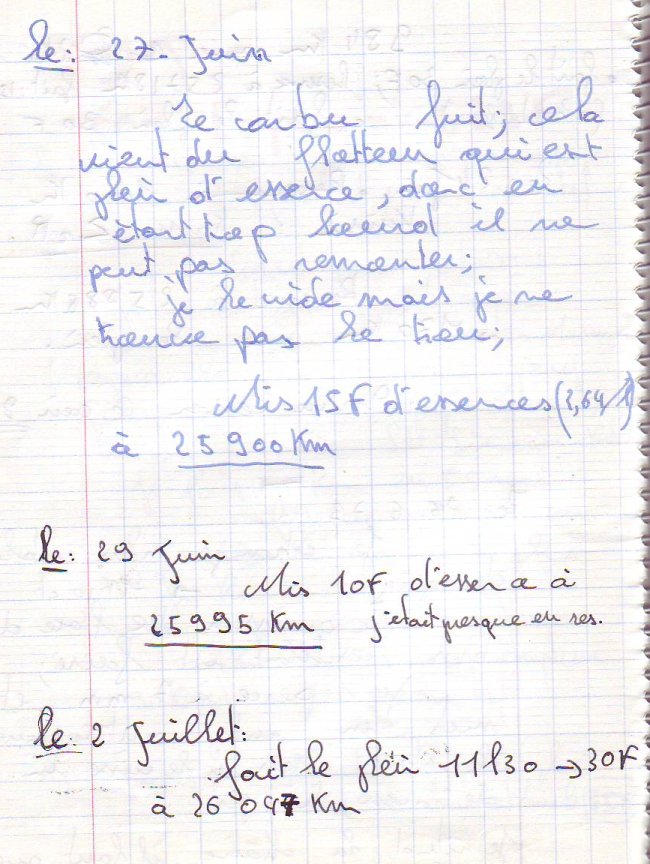 le: 27- Juin
Le carbu fuit; cela
vient du flotteur qui est
plein d'essence, donc en
étant trop lourd il ne
peut pas remonter;
je le vide mais je ne
trouve pas le trou;
Mis 15F d'essences (2,64/l)
à 25900 Km
le: 29 Juin
Mis 10F d'essence à
25995 Km j'etait presque en res.
le: 2 Juillet:
fait le plein 11l30 → 30F
à 26047 Km